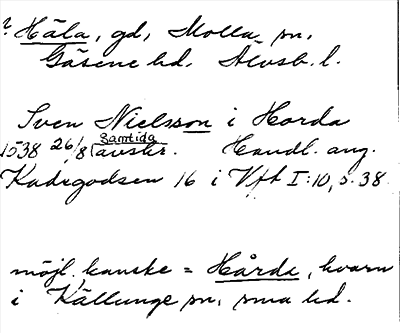 ? Häla, gd, Molla sn,
Gäsene hd. Älvsb. l.
Sven Nielsson i Horda
1538 26/8 (samtida avskr. Handl. ang.
Kadsgodsen 16 i Vft I:10, s. 38.
möjl. kanske = Hårda, kvarn
i Källunge sn, sma hd.